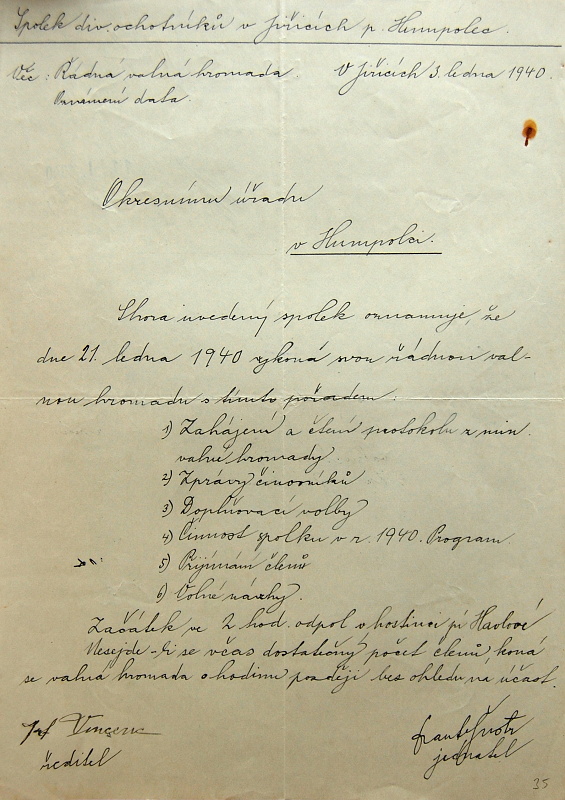 Spolek div. ochotníků v Jiřicích p. Humpolec.
Věc: Řádná valná hromada. V Jiřicích 3. ledna 1940.
Oznámení data.
Okresnímu úřadu
v Humpolci.
Shora uvedený spolek oznamuje, že
dne 21. ledna 1940 vykoná svou řádnou val-
nou hromadu s tímto pořadem:
1) Zahájení a čtení protokolu z min.
valné hromady.
2) Zprávy činovníků
3) Doplňovací volby
4) Činnost spolku v r. 1940. Program.
5) Přijímání členů
6) Volné návrhy.
Začátek ve 2 hod. odpol. v hostinci pí Havlové
Nesejde-li se včas dostatečný počet členů, koná
se valná hromada o hodinu později bez ohledu na účast.
Jos. Vincenc
ředitel
jednatel
35